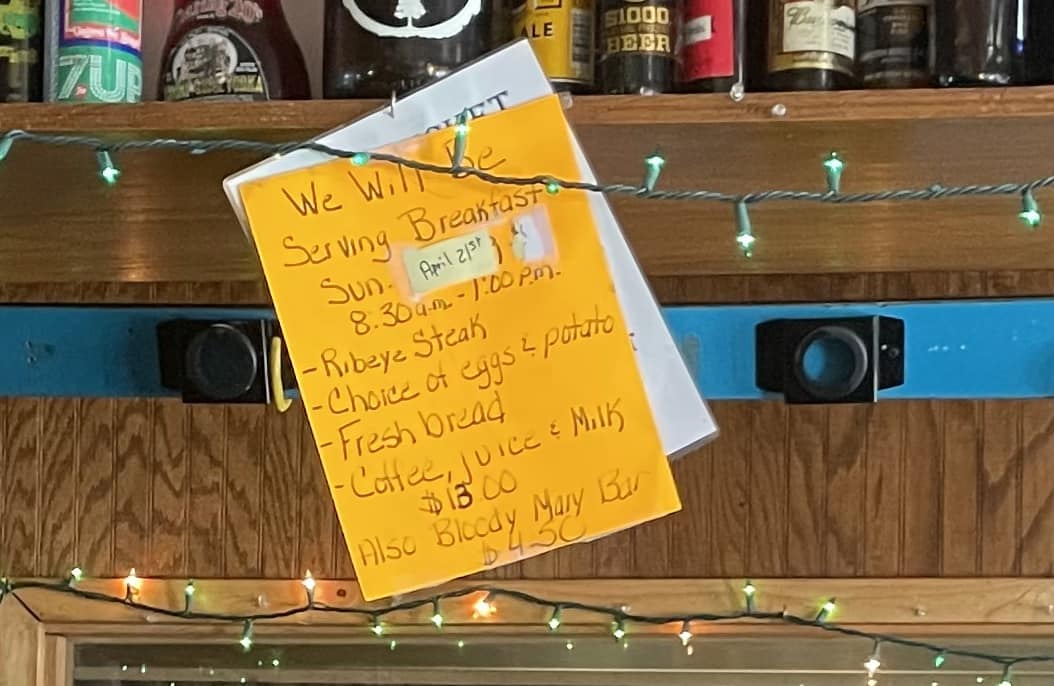 7UP
ALE
$1000
BEER
We Will Be
Serving Breakfast
Sun. April 21st
8:30a.m. - 1:00 P.m.
- Ribeye Steak
- Choice of eggs & potato
- Fresh bread
- Coffee, juice & Milk
$13.00
Also Bloody Mary Bar
$4.50